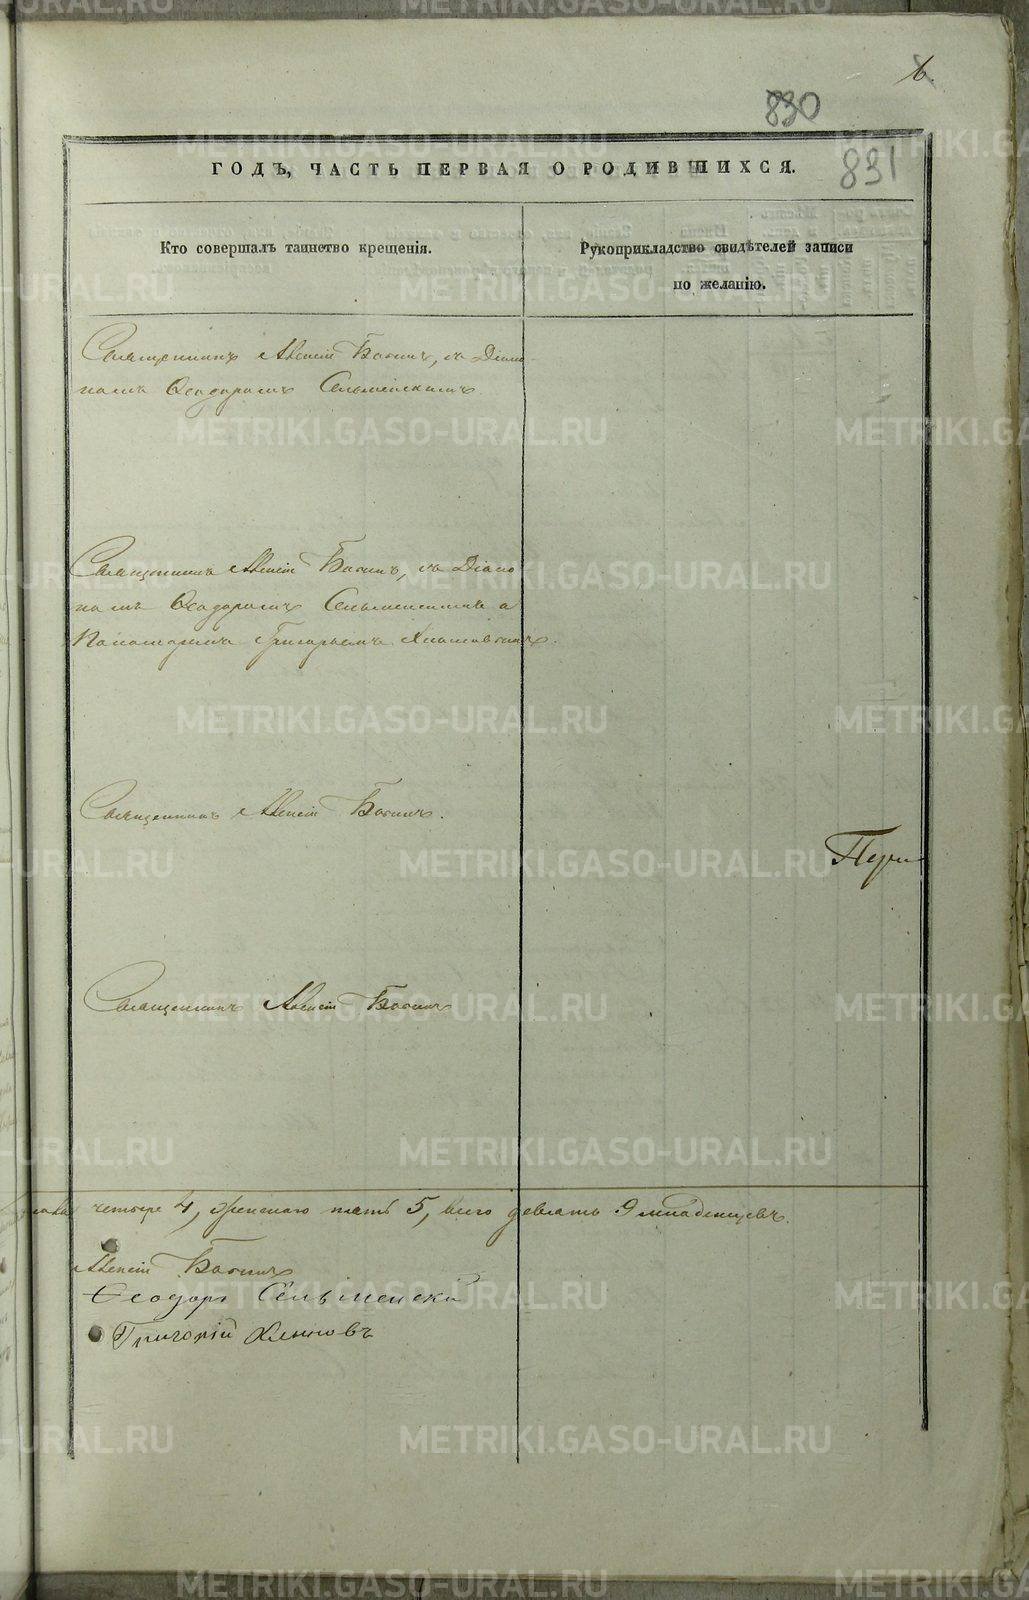 6.
830
831
ГОДЪ, ЧАСТЬ ПЕРВАЯ О РОДИВШИХСЯ.
Кто совершалъ таинство крещенія.
Рукоприкладство свидѣтелей записи
по желанію.
Священникъ Алексій Бабинъ, съ Діако-
номъ Ѳеодоромъ Сельменскимъ
Священникъ Алексій Бабинъ, съ Діако
номъ Ѳеодоромъ Сельменскимъ и
Пономаремъ Григорьемъ
Священникъ Алексій Бабинъ.
Священникъ Алексій Бабинъ
четыре 4, женскаго пять 5, всего девять 9 младенцевъ.
Алексій Бабинъ
Ѳеодоръ Сельменскій
Григорій
METRIKI.GASO-URAL.RU